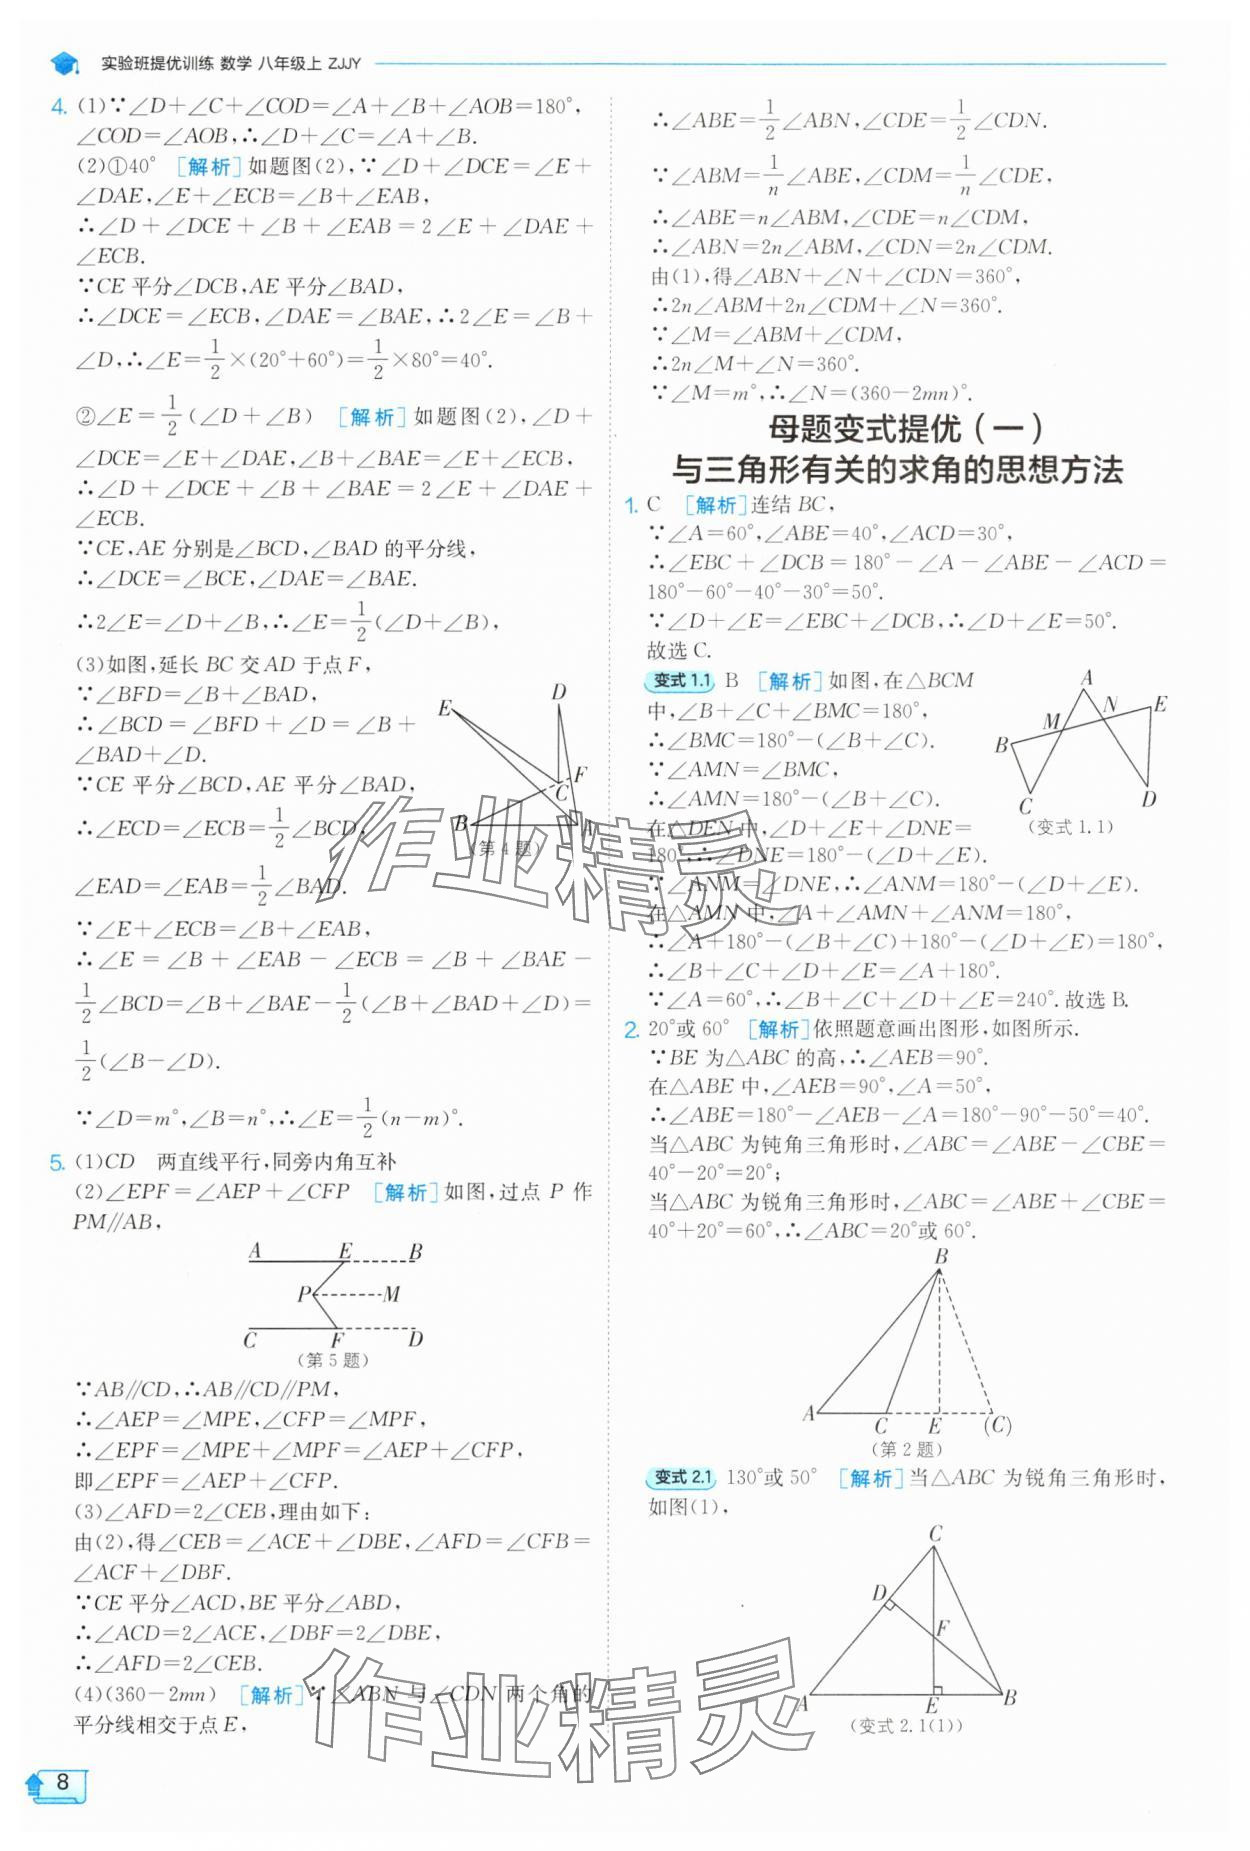 实验班提优训练 数学 八年级上 ZJJY
4. (1)∵∠D+∠C+∠COD=∠A+∠B+∠AOB=180°,
∠COD=∠AOB,∴∠D+∠C=∠A+∠B.
(2)①40° [解析]如题图(2),∵∠D+∠DCE=∠E+
∠DAE,∠E+∠ECB=∠B+∠EAB,
∴∠D+∠DCE+∠B+∠EAB=2∠E+∠DAE+
∠ECB.
∵CE平分∠DCB,AE平分∠BAD,
∴∠DCE=∠ECB,∠DAE=∠BAE,∴2∠E=∠B+
∠D,∴∠E=1/2×(20°+60°)=1/2×80°=40°.
②∠E=1/2(∠D+∠B) [解析]如题图(2),∠D+
∠DCE=∠E+∠DAE,∠B+∠BAE=∠E+∠ECB,
∴∠D+∠DCE+∠B+∠BAE=2∠E+∠DAE+
∠ECB.
∵CE,AE分别是∠BCD,∠BAD的平分线,
∴∠DCE=∠BCE,∠DAE=∠BAE.
∴2∠E=∠D+∠B,∴∠E=1/2(∠D+∠B),
(3)如图,延长BC交AD于点F,
∵∠BFD=∠B+∠BAD,
∴∠BCD=∠BFD+∠D=∠B+
∠BAD+∠D.
∵CE平分∠BCD,AE平分∠BAD,
∴∠ECD=∠ECB=1/2∠BCD,
∠EAD=∠EAB=1/2∠BAD.
E D F C B A
(第4题)
∵∠E+∠ECB=∠B+∠EAB,
∴∠E=∠B+∠EAB-∠ECB=∠B+∠BAE-
1/2∠BCD=∠B+∠BAE-1/2(∠B+∠BAD+∠D)=
1/2(∠B-∠D).
∵∠D=m°,∠B=n°,∴∠E=1/2(n-m)°.
5. (1)CD 两直线平行,同旁内角互补
(2)∠EPF=∠AEP+∠CFP [解析]如图,过点P作
PM∥AB,
A E B
P M
C F D
(第5题)
∵AB∥CD,∴AB∥CD∥PM,
∴∠AEP=∠MPE,∠CFP=∠MPF,
∴∠EPF=∠MPE+∠MPF=∠AEP+∠CFP,
即∠EPF=∠AEP+∠CFP.
(3)∠AFD=2∠CEB,理由如下:
由(2),得∠CEB=∠ACE+∠DBE,∠AFD=∠CFB=
∠ACF+∠DBF.
∵CE平分∠ACD,BE平分∠ABD,
∴∠ACD=2∠ACE,∠DBF=2∠DBE,
∴∠AFD=2∠CEB.
(4)(360-2mn) [解析]∵∠ABN与∠CDN两个角的
平分线相交于点E,
8
∴∠ABE=1/2∠ABN,∠CDE=1/2∠CDN.
∵∠ABM=1/n∠ABE,∠CDM=1/n∠CDE,
∴∠ABE=n∠ABM,∠CDE=n∠CDM,
∴∠ABN=2n∠ABM,∠CDN=2n∠CDM.
由(1),得∠ABN+∠N+∠CDN=360°,
∴2n∠ABM+2n∠CDM+∠N=360°.
∵∠M=∠ABM+∠CDM,
∴2n∠M+∠N=360°.
∵∠M=m°,∴∠N=(360-2mn)°.
母题变式提优(一)
与三角形有关的求角的思想方法
1. C [解析]连结BC,
∵∠A=60°,∠ABE=40°,∠ACD=30°,
∴∠EBC+∠DCB=180°-∠A-∠ABE-∠ACD=
180°-60°-40°-30°=50°.
∵∠D+∠E=∠EBC+∠DCB,∴∠D+∠E=50°.
故选C.
变式1.1 B [解析]如图,在△BCM
中,∠B+∠C+∠BMC=180°,
∴∠BMC=180°-(∠B+∠C).
∵∠AMN=∠BMC,
∴∠AMN=180°-(∠B+∠C).
在△DEN中,∠D+∠E+∠DNE=
180°,∴∠DNE=180°-(∠D+∠E).
A M N E B C D
(变式1.1)
∵∠ANM=∠DNE,∴∠ANM=180°-(∠D+∠E).
在△AMN中,∠A+∠AMN+∠ANM=180°,
∴∠A+180°-(∠B+∠C)+180°-(∠D+∠E)=180°,
∴∠B+∠C+∠D+∠E=∠A+180°.
∵∠A=60°,∴∠B+∠C+∠D+∠E=240°.故选B.
2. 20°或60° [解析]依照题意画出图形,如图所示.
∵BE为△ABC的高,∴∠AEB=90°.
在△ABE中,∠AEB=90°,∠A=50°,
∴∠ABE=180°-∠AEB-∠A=180°-90°-50°=40°.
当△ABC为钝角三角形时,∠ABC=∠ABE-∠CBE=
40°-20°=20°;
当△ABC为锐角三角形时,∠ABC=∠ABE+∠CBE=
40°+20°=60°,∴∠ABC=20°或60°.
B
A C E (C)
(第2题)
变式2.1 130°或50° [解析]当△ABC为锐角三角形时,
如图(1),
C
D
F
A E B
(变式2.1(1))
作业精灵
作业精灵